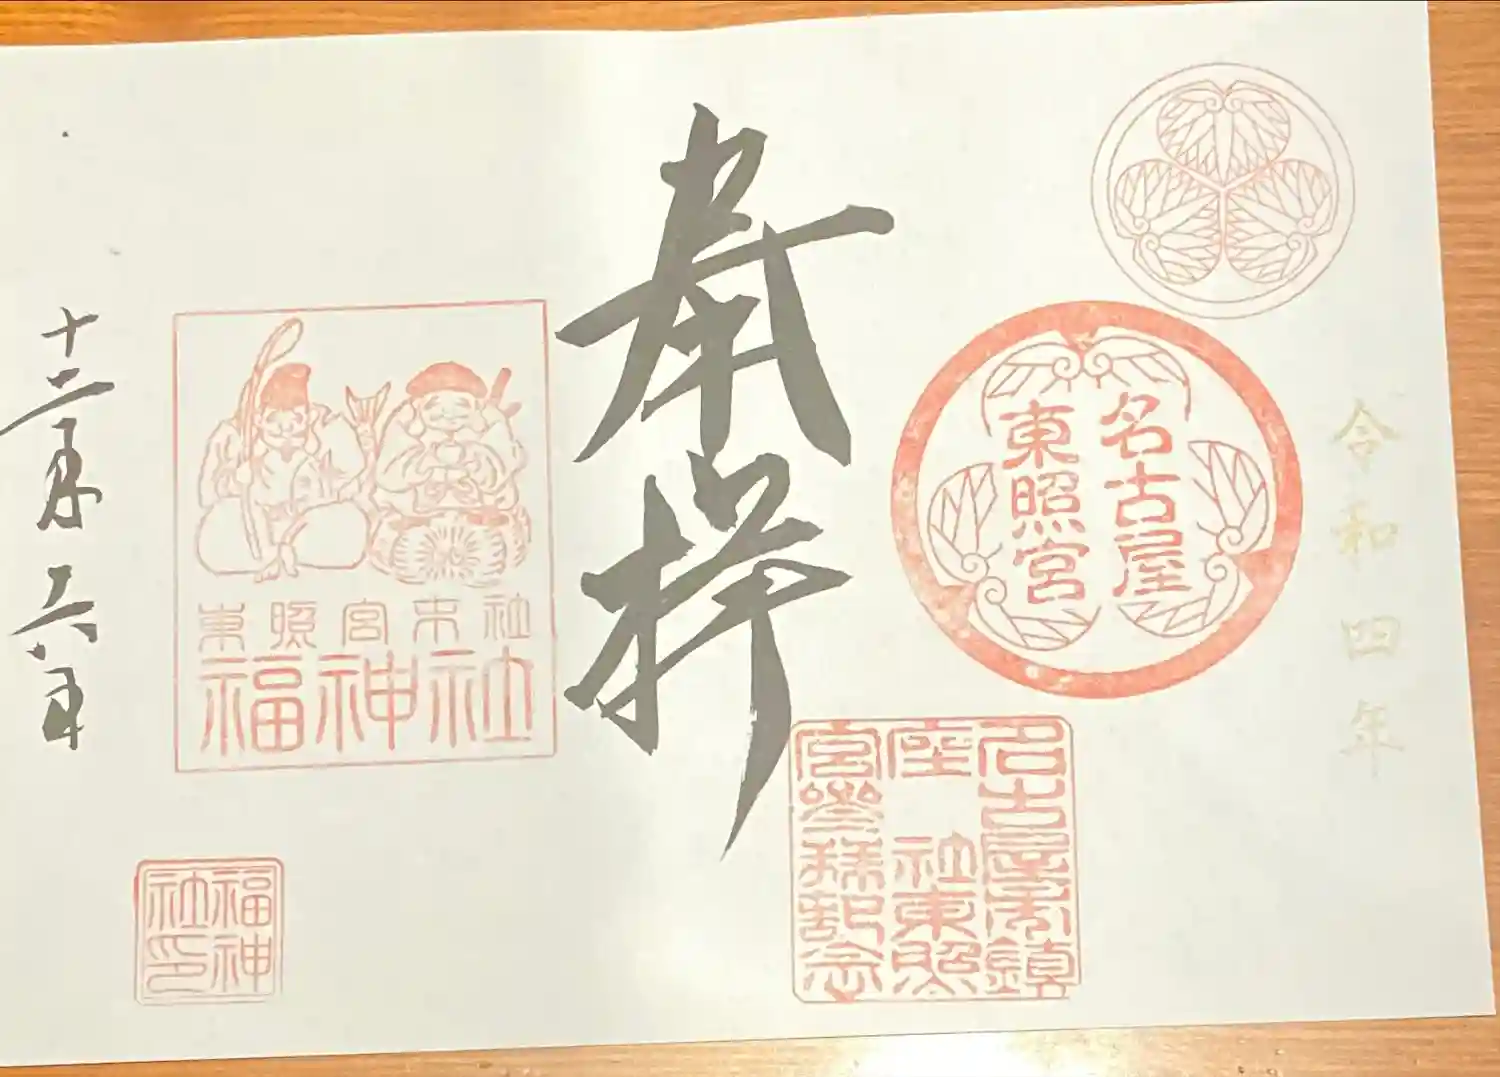 令和四年
名古屋
東照宮
奉拝
名古屋市鎮
座 社東照
宮參拜記念
東照宮末社
福神社
十二月六日
福神
社印